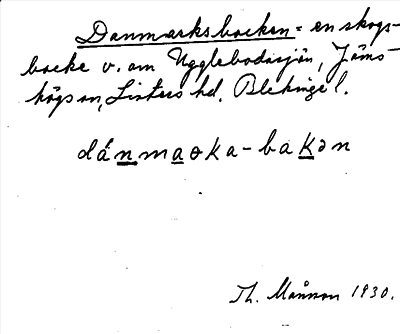 Danmarksbacken = en skogs-
backe v. om Ugglebodasjön, Jäms-
högs sn, Listers hd. Blekinge l.
dánmaɵka-bakən
Th. Månsson 1930.